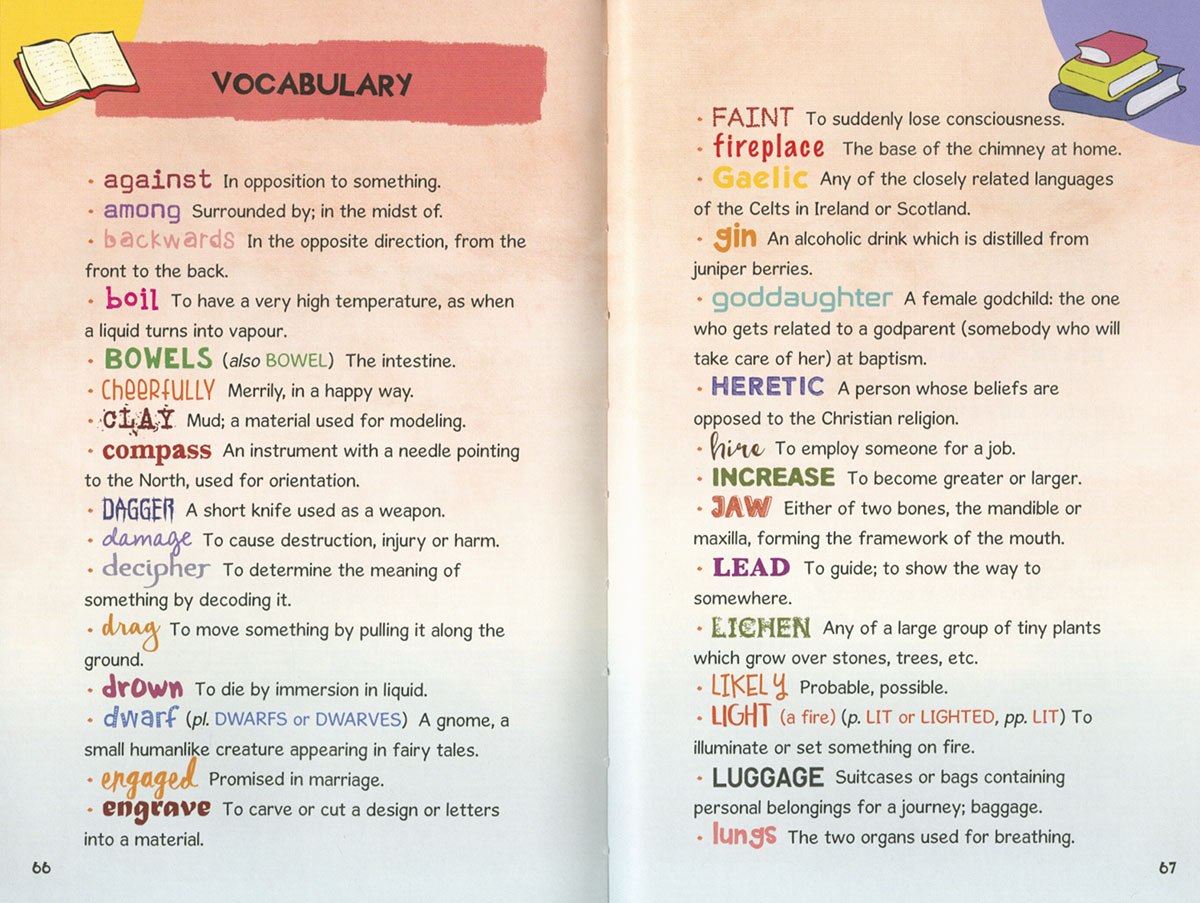 VOCABULARY
• against In opposition to something.
• among Surrounded by; in the midst of.
• backwards In the opposite direction, from the
front to the back.
• boil To have a very high temperature, as when
a liquid turns into vapour.
• BOWELS (also BOWEL) The intestine.
• CHEERFULLY Merrily, in a happy way.
• CLAY Mud; a material used for modeling.
• compass An instrument with a needle pointing
to the North, used for orientation.
• DAGGER A short knife used as a weapon.
• damage To cause destruction, injury or harm.
• decipher To determine the meaning of
something by decoding it.
• drag To move something by pulling it along the
ground.
• drown To die by immersion in liquid.
• dwarf (pl. DWARFS or DWARVES) A gnome, a
small humanlike creature appearing in fairy tales.
• engaged Promised in marriage.
• engrave To carve or cut a design or letters
into a material.
66
• FAINT To suddenly lose consciousness.
• fireplace The base of the chimney at home.
• Gaelic Any of the closely related languages
of the Celts in Ireland or Scotland.
• gin An alcoholic drink which is distilled from
juniper berries.
• goddaughter A female godchild: the one
who gets related to a godparent (somebody who will
take care of her) at baptism.
• HERETIC A person whose beliefs are
opposed to the Christian religion.
• hire To employ someone for a job.
• INCREASE To become greater or larger.
• JAW Either of two bones, the mandible or
maxilla, forming the framework of the mouth.
• LEAD To guide; to show the way to
somewhere.
• LICHEN Any of a large group of tiny plants
which grow over stones, trees, etc.
• LIKELY Probable, possible.
• LIGHT (a fire) (p. LIT or LIGHTED, pp. LIT) To
illuminate or set something on fire.
• LUGGAGE Suitcases or bags containing
personal belongings for a journey; baggage.
• lungs The two organs used for breathing.
67